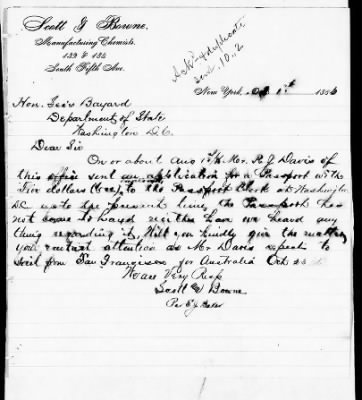 Scott & Bowne.
Manufacturing Chemists.
132 & 134
South Fifth Ave.
Ack & duplicate
sent. 10-2
New York, Oct 1st 1886
Hon. Bayard
Department of State
Washington D.C.
Dear Sir
On or about Aug Mr. R. J. Davis of
this office sent an application for a Passport with
Five dollars to the Passport Clerk at Washington
D.C. up to the present time, the Passport has
not come to hand neither have we heard any
thing regarding it, Will you kindly give the matter
your attention as Mr Davis expects to
sail from San Francisco for Australia Oct 23
We are Very Resp
Scott & Bowne
Per